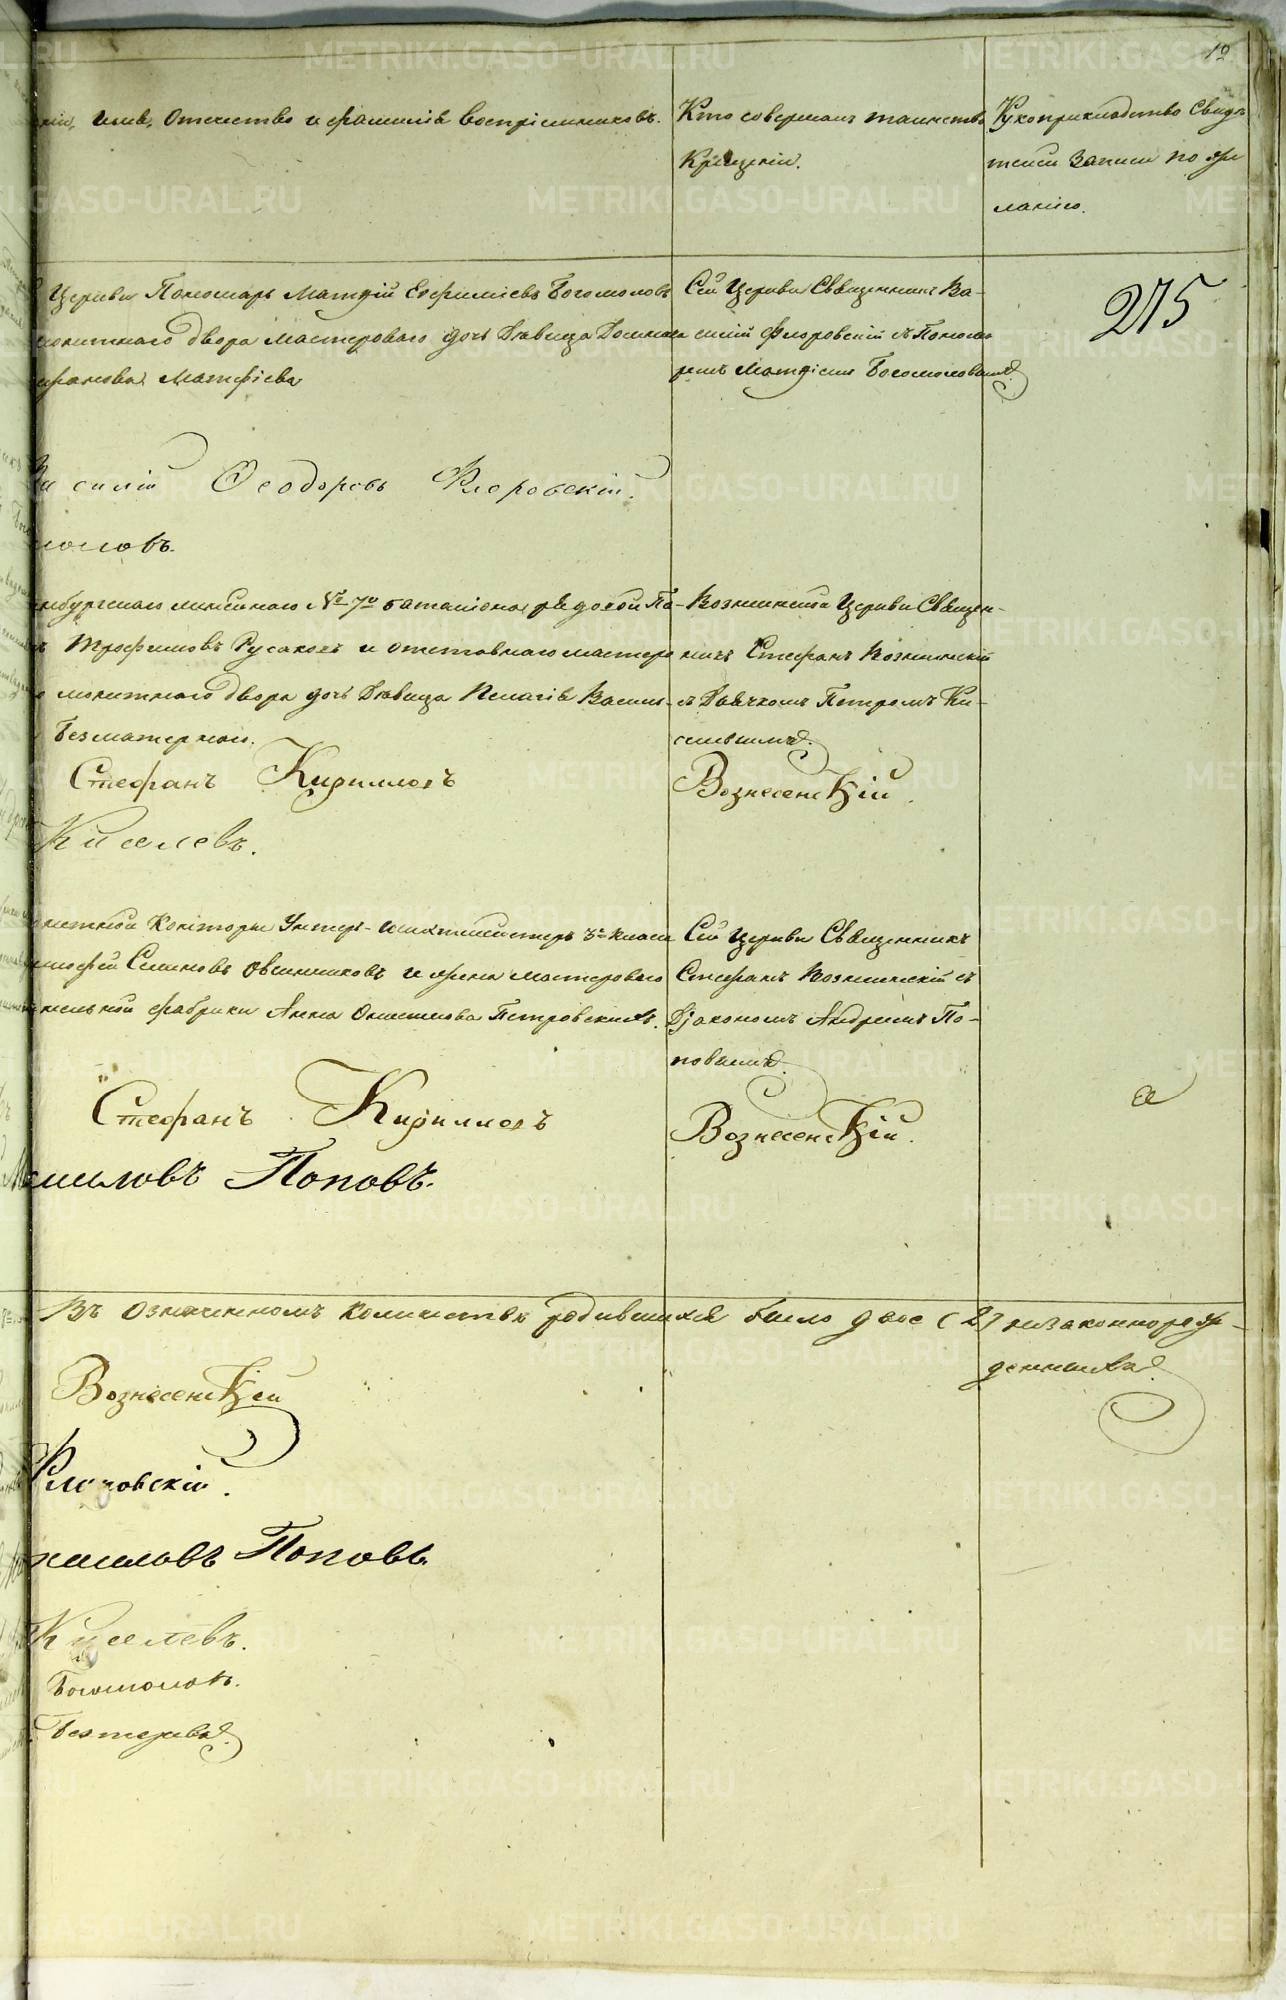 12
имя, Отечество и фамилія Воспріемниковъ.
Кто совершалъ таинство
Крещенія.
Рукоприкладство Свидѣ
телей Записи по же
ланію.
Церкви Пономарь Матфій Ефиміевъ Богомоловъ
монетнаго двора мастероваго дочь Дѣвица Домна
Матфіева
Сей Церкви Священникъ Ва-
силій Флоровскій съ Понома
ремъ Матфіемъ Богомоловымъ.
275
силій Ѳеодоровъ Флоровскій.
моловъ.
бургскаго линейнаго № 7го баталіона рядовой Па-
Трофимовъ Русаковъ и отставнаго мастеро
монетнаго двора дочь Дѣвица Пелагія Васил-
Безматерныхъ.
Вознесенской Церкви Священ-
никъ Стефанъ Вознесенскій
съ Дьячкомъ Петромъ Ки-
селевымъ.
Стефанъ Кириловъ
Вознесенскій.
Киселевъ.
Конторы Унтеръ-шихтмейстеръ 3го класса
Семеновъ Овчинниковъ и жена мастероваго
фабрики Анна Петровскихъ.
Сей Церкви Священникъ
Стефанъ Вознесенскій съ
Діакономъ Андреемъ По-
повымъ.
Стефанъ Кириловъ
Вознесенскій.
Поповъ.
Въ означенномъ количествѣ родившихся было двое (2) незаконнорож-
денныхъ.
Вознесенскій
Флоровскій.
Поповъ.
Киселевъ.
Богомоловъ.
METRIKI.GASO-URAL.RU